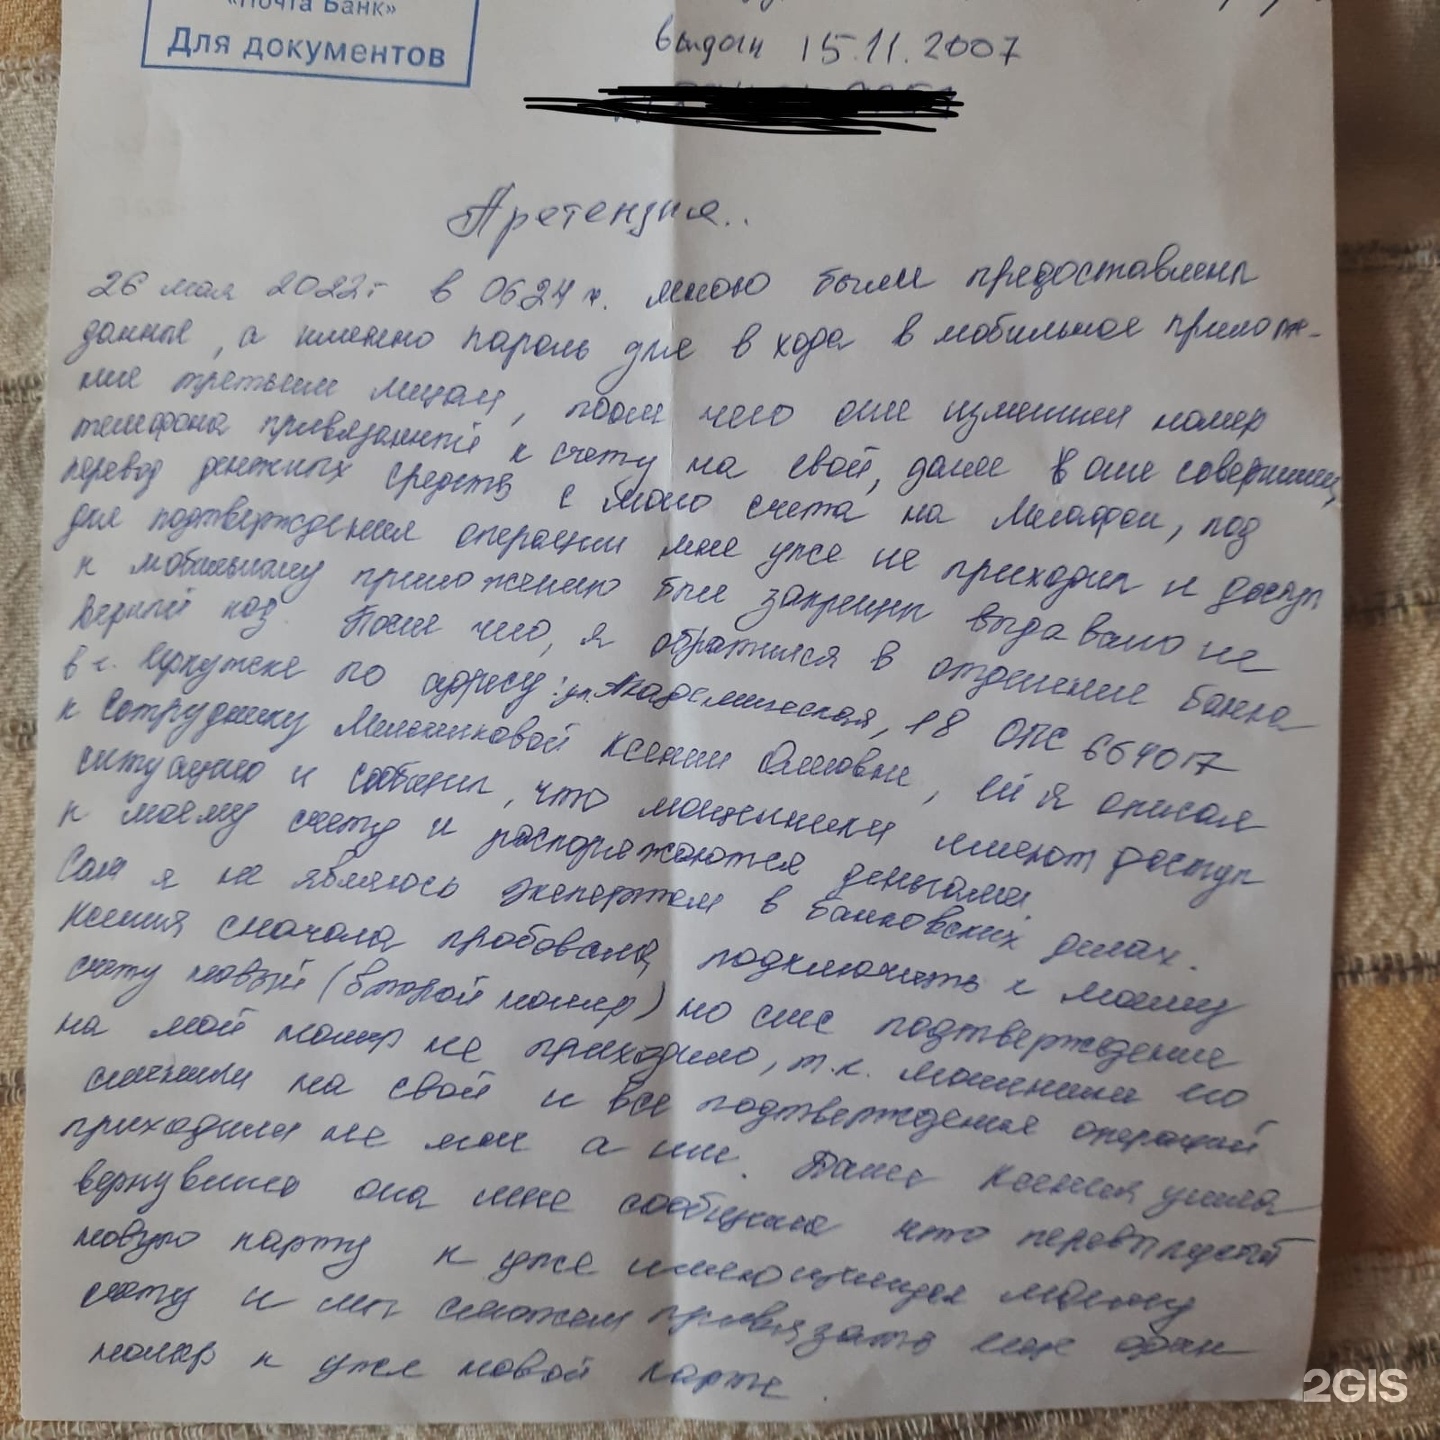 «Почта Банк»
Для документов
выдан 15.11.2007
Претензия..
26 мая 2022г в 0624 ч. мною были предоставлены
данные, а именно пароль для входа в мобильное прилож-
ние третьим лицам, после чего они изменили номер
телефона привязанный к счету на свой, далее они совершили
перевод денежных средств с моего счета на Мегафон, код
для подтверждения операции мне уже не приходил и доступ
к мобильному приложению был запрещен выдавало не
верный код. После чего, я обратился в отделение банка
в г. Иркутске по адресу: ул. Академическая, 18 ОПС 664017
к сотруднику Мельниковой Ксении Олеговне, ей я описал
ситуацию и сообщил, что мошенники имеют доступ
к моему счету и распоряжаются деньгами.
Сам я не являюсь экспертом в банковских делах.
Ксения сначала пробовала подключить к моему
счету новый (второй номер) но смс подтверждение
на мой номер не приходило, т.к. мошенники его
сменили на свой и все подтверждения операций
приходили не мне а им. Далее Ксения ушла
вернувшись она мне сообщила что перевыпустит
новую карту к уже имеющемуся моему
счету и мы сможем привязать еще один
номер к уже новой карте.
2GIS